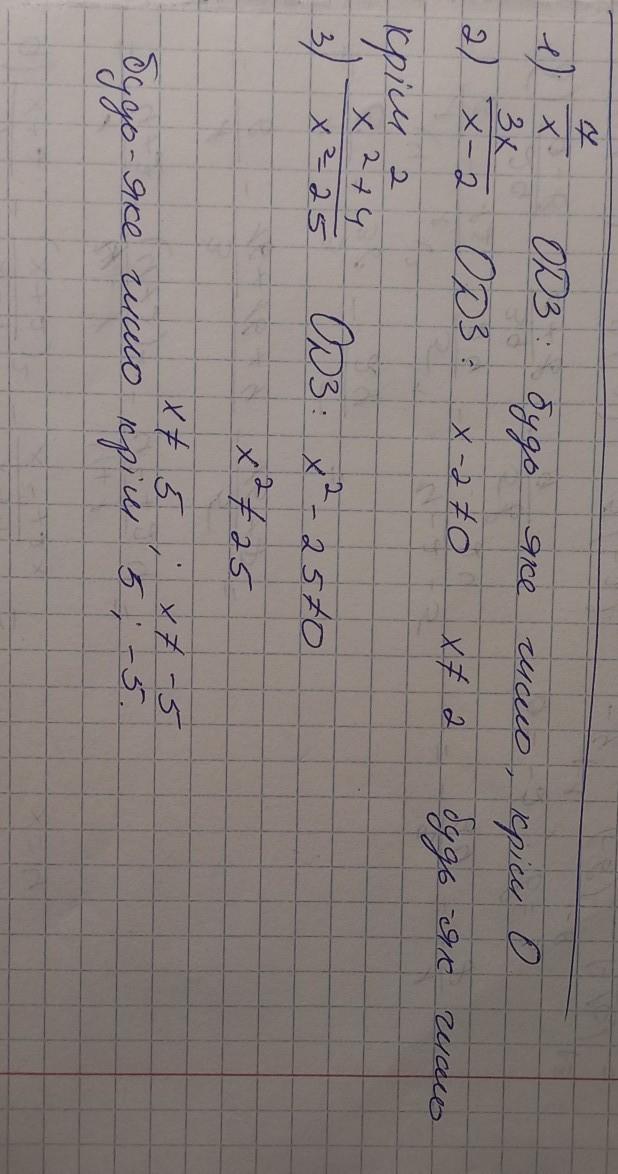 1) 4/x ОДЗ: будь яке число, крім 0
2) 3x/(x-2) ОДЗ: x-2≠0 x≠2 будь-як число
крім 2
3) (x²+4)/(x²=25) ОДЗ: x²-25≠0
x²≠25
x≠5; x≠-5
будь-яке число крім 5; -5.